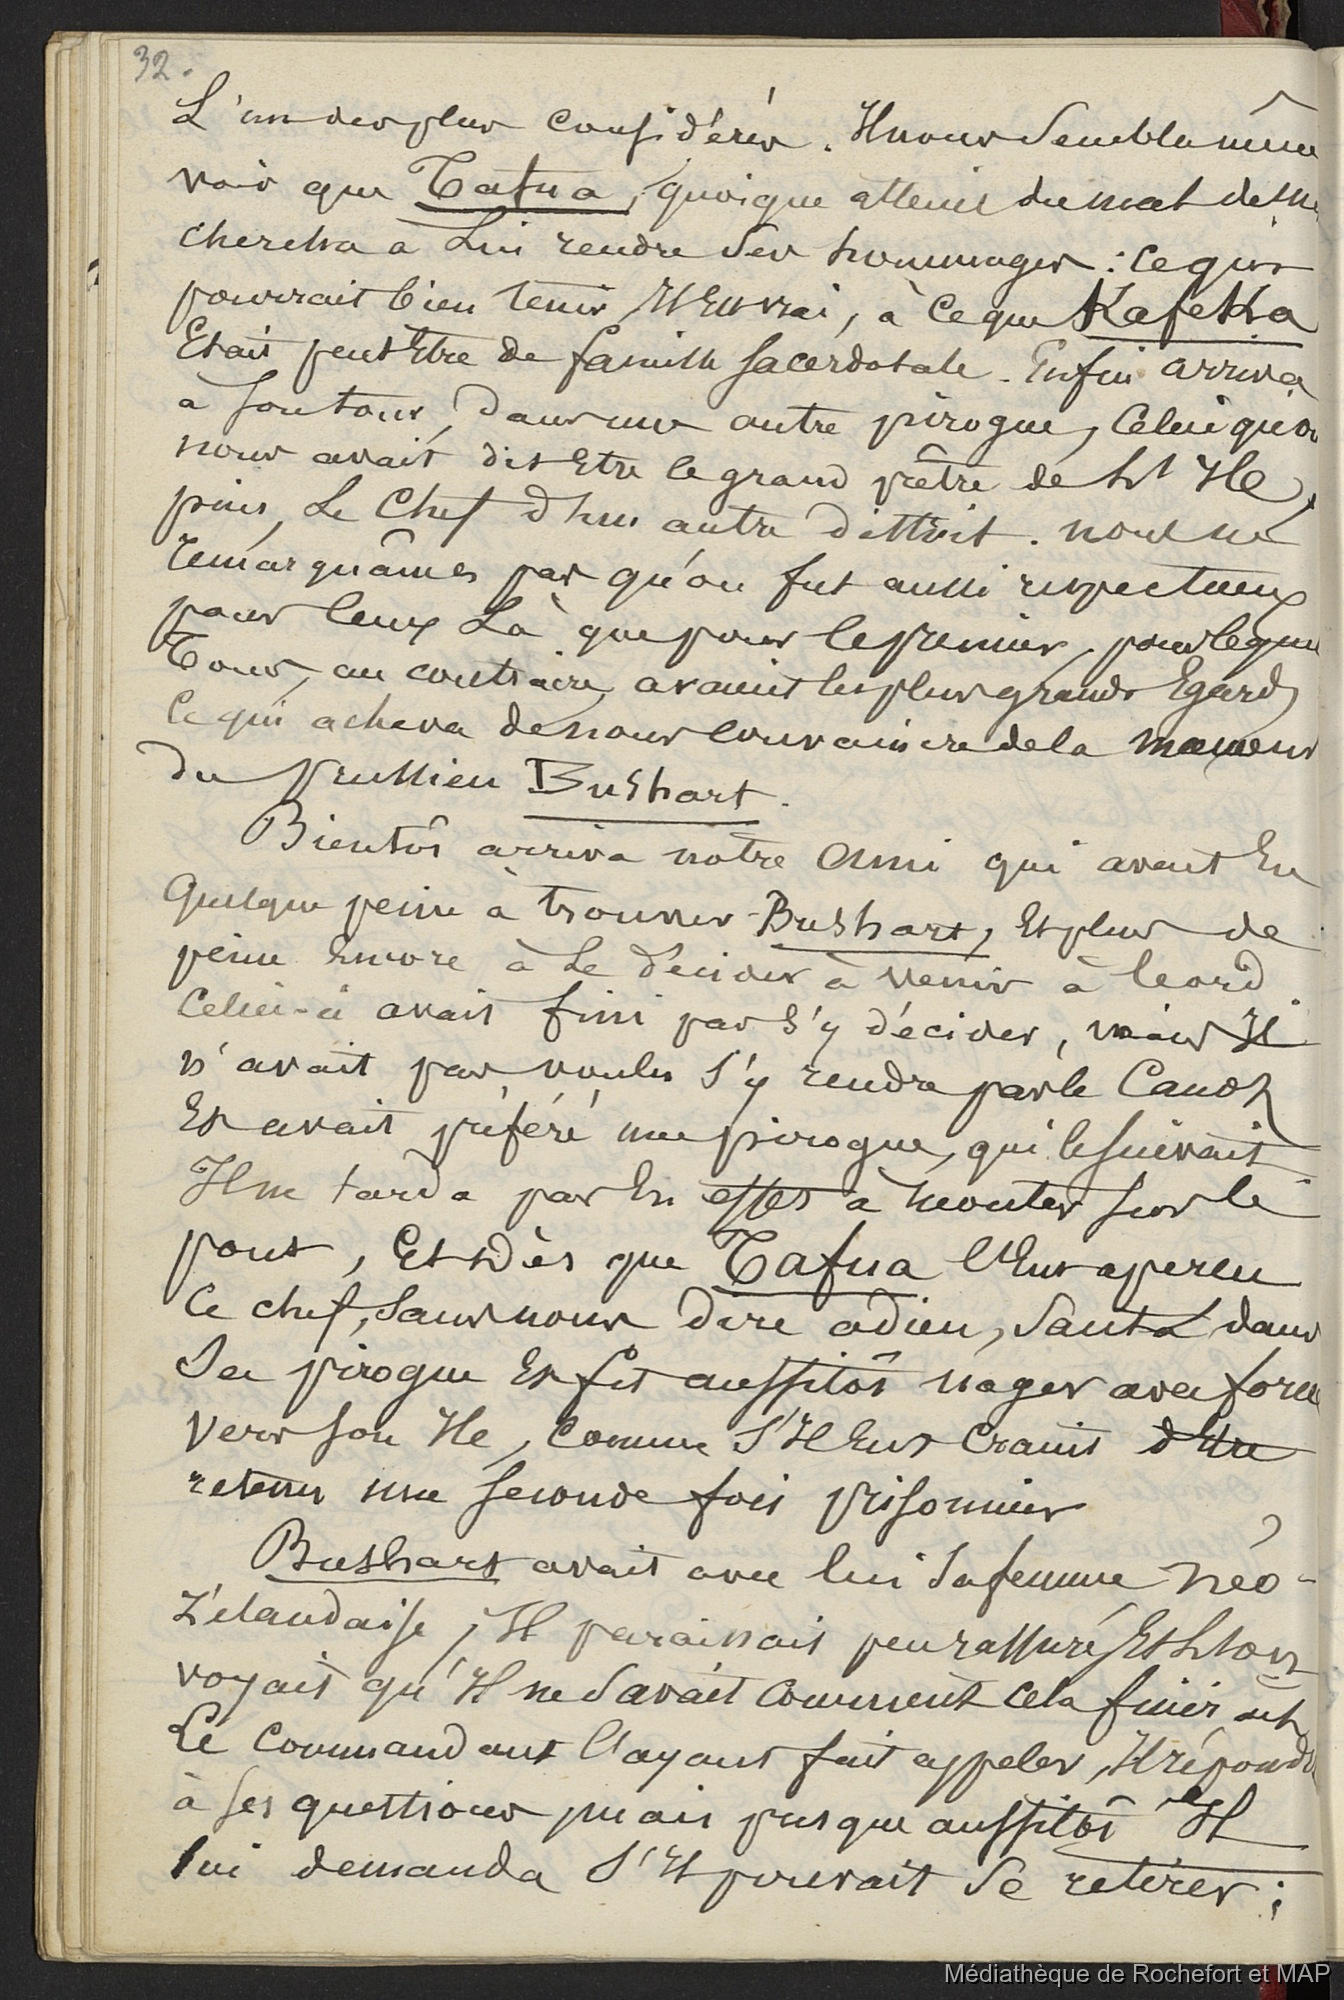 32.
L'un des plus considérés. Il nous sembla même
voir que Tafua, quoique atteint du mal de m
chercha à lui rendre ses hommages : ce qui
pourrait bien tenir, Il Est vrai, à ce que Kafetta
Etait peut Etre de famille sacerdotale. Enfin arriva
à son tour, dans une autre pirogue, celui qu'on
nous avait dit Etre le grand prêtre de l'Ile,
puis, Le Chef d'un autre district. nous ne
remarquâmes pas qu'on fut aussi respectueux
pour Ceux Là que pour le premier, pour lequel
Tous, au contraire, avaient les plus grands Egards
Ce qui acheva de nous convaincre de la
du prussien Bushart.
Bientôt arriva notre ami qui avait Eu
quelque peine à trouver Bushart, Et plus de
peine Encore à Le décider à venir à bord
Celui-ci avait fini par s'y décider, mais Il
n'avait pas voulu s'y rendre par le Canot
Et avait préféré une pirogue, qui le suivait
Il ne tarda pas En effet à monter sur le
pont, Et Dès que Tafua l'Eut aperçu
Ce chef, sans nous dire adieu, sauta dans
Sa pirogue Et fit aussitôt nager avec force
vers son Ile, comme s'Il Eut craint d'Etre
retenu une seconde fois prisonnier
Bushart avait avec lui sa femme néo-
Zélandaise, Il paraissait peu rassuré Et l'on
voyait qu'Il ne savait comment cela finir ait
Le Commandant l'ayant fait appeler, Il répondit
à ses questions, mais presque aussitôt Il
lui demanda s'Il pouvait se retirer ;
Médiathèque de Rochefort et MAP